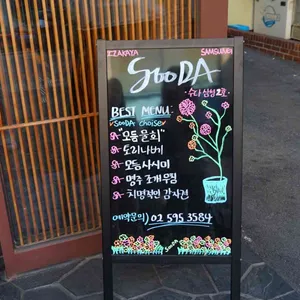 IZAKAYA SAMSUNG
SOODA
수다 삼성2호
BEST MENU:
SOODA choise
"모둠물회"
도리나베
모둠사시미
명주조개무침
치명적인 감자전
예약문의) 02 595 3584